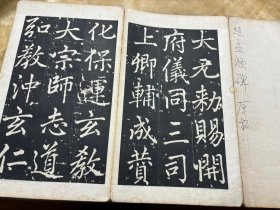 大元勑賜開
府儀同三司
上卿輔成贊
化保運玄教
大宗師志道
弘教冲玄仁